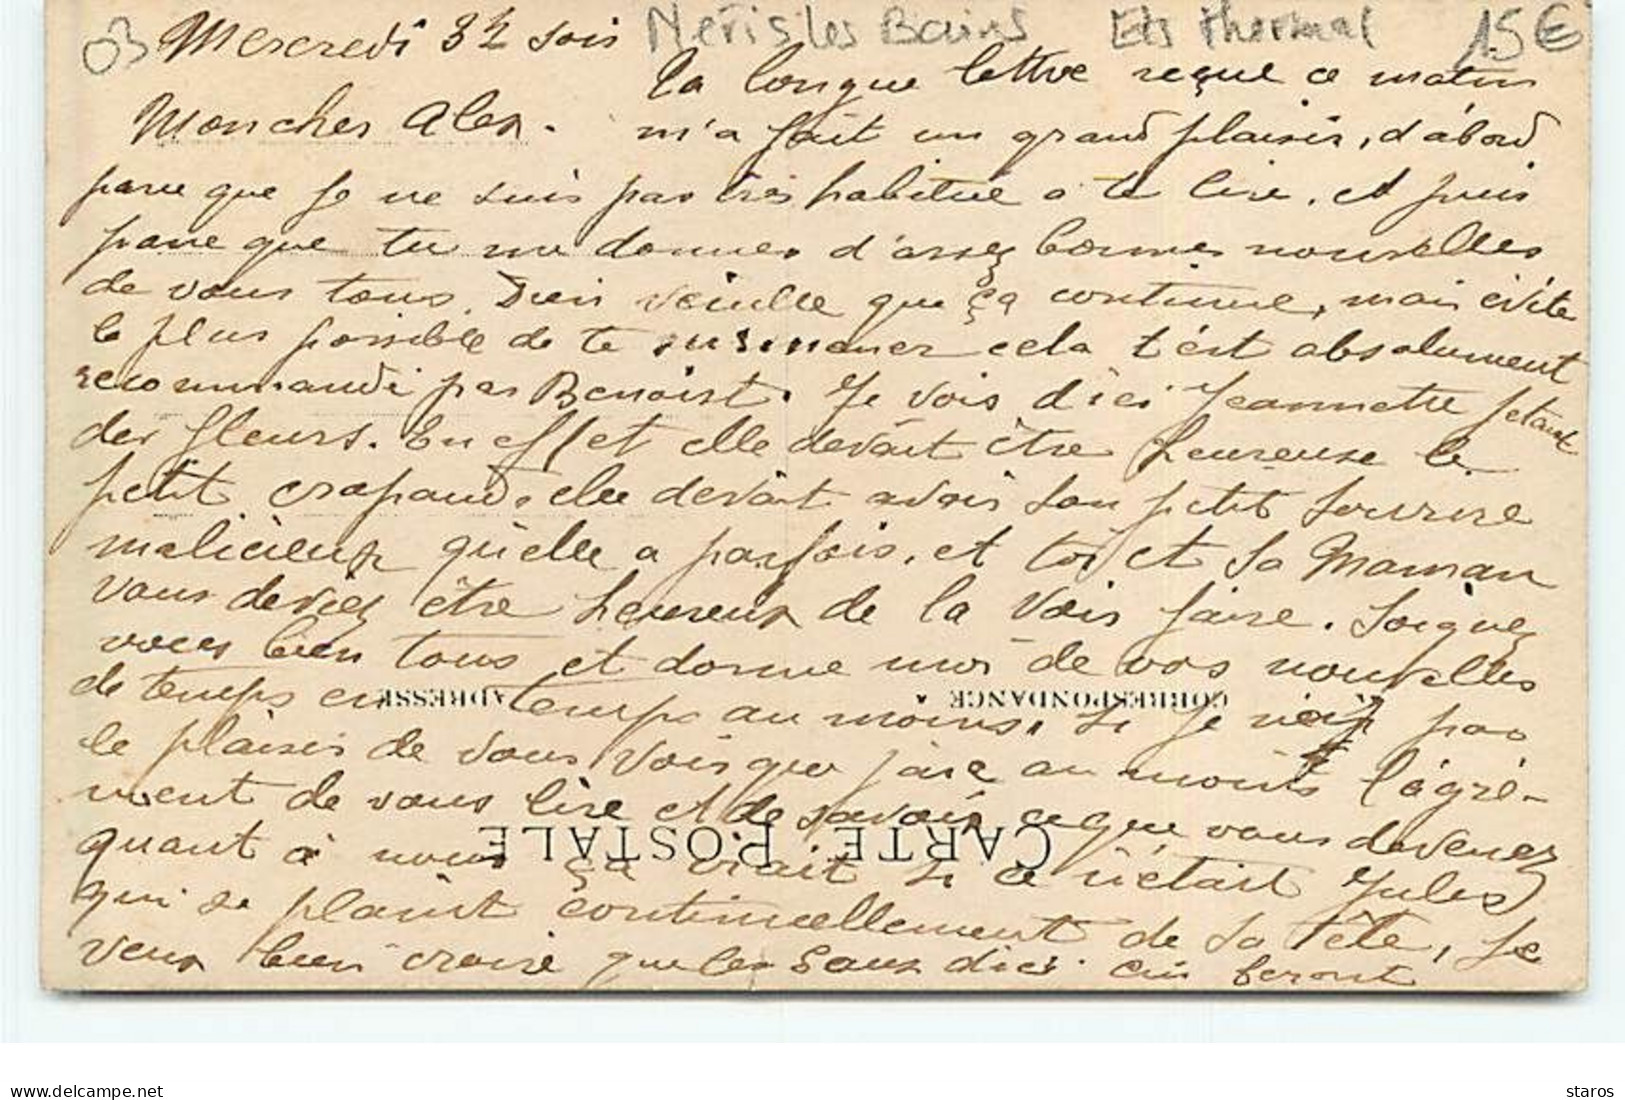 03 Mercredi 3h soir Neris les Bains Ets thermal 15€
Ta longue lettre reçue ce matin
Mon cher Alex. m'a fait un grand plaisir, d'abord
parce que je ne suis pas très habitué a te lire, et puis
parce que tu me donnes d'assez bonnes nouvelles
de vous tous. Dieu veuille que ça continue, mais évite
le plus possible de te surmener cela t'est absolument
recommandé par Benoist. Je vois d'ici Jeannette jetant
des fleurs. En effet elle devait être heureuse le
petit crapaud. elle devait avoir son petit sourire
malicieux qu'elle a parfois, et toi et sa Maman
vous deviez être heureux de la voir faire. Soignez
vous bien tous et donne moi de vos nouvelles
CORRESPONDANCE ADRESSE
de temps en temps au moins, si je n'ai pas
le plaisir de vous voir que j'aie au moins l'agré-
ment de vous lire et de savoir ce que vous devenez
CARTE POSTALE
quant à nous ça irait si ce n'était Jules
qui se plaint continuellement de sa tête, je
veux bien croire que les Eaux d'ici lui feront
staros